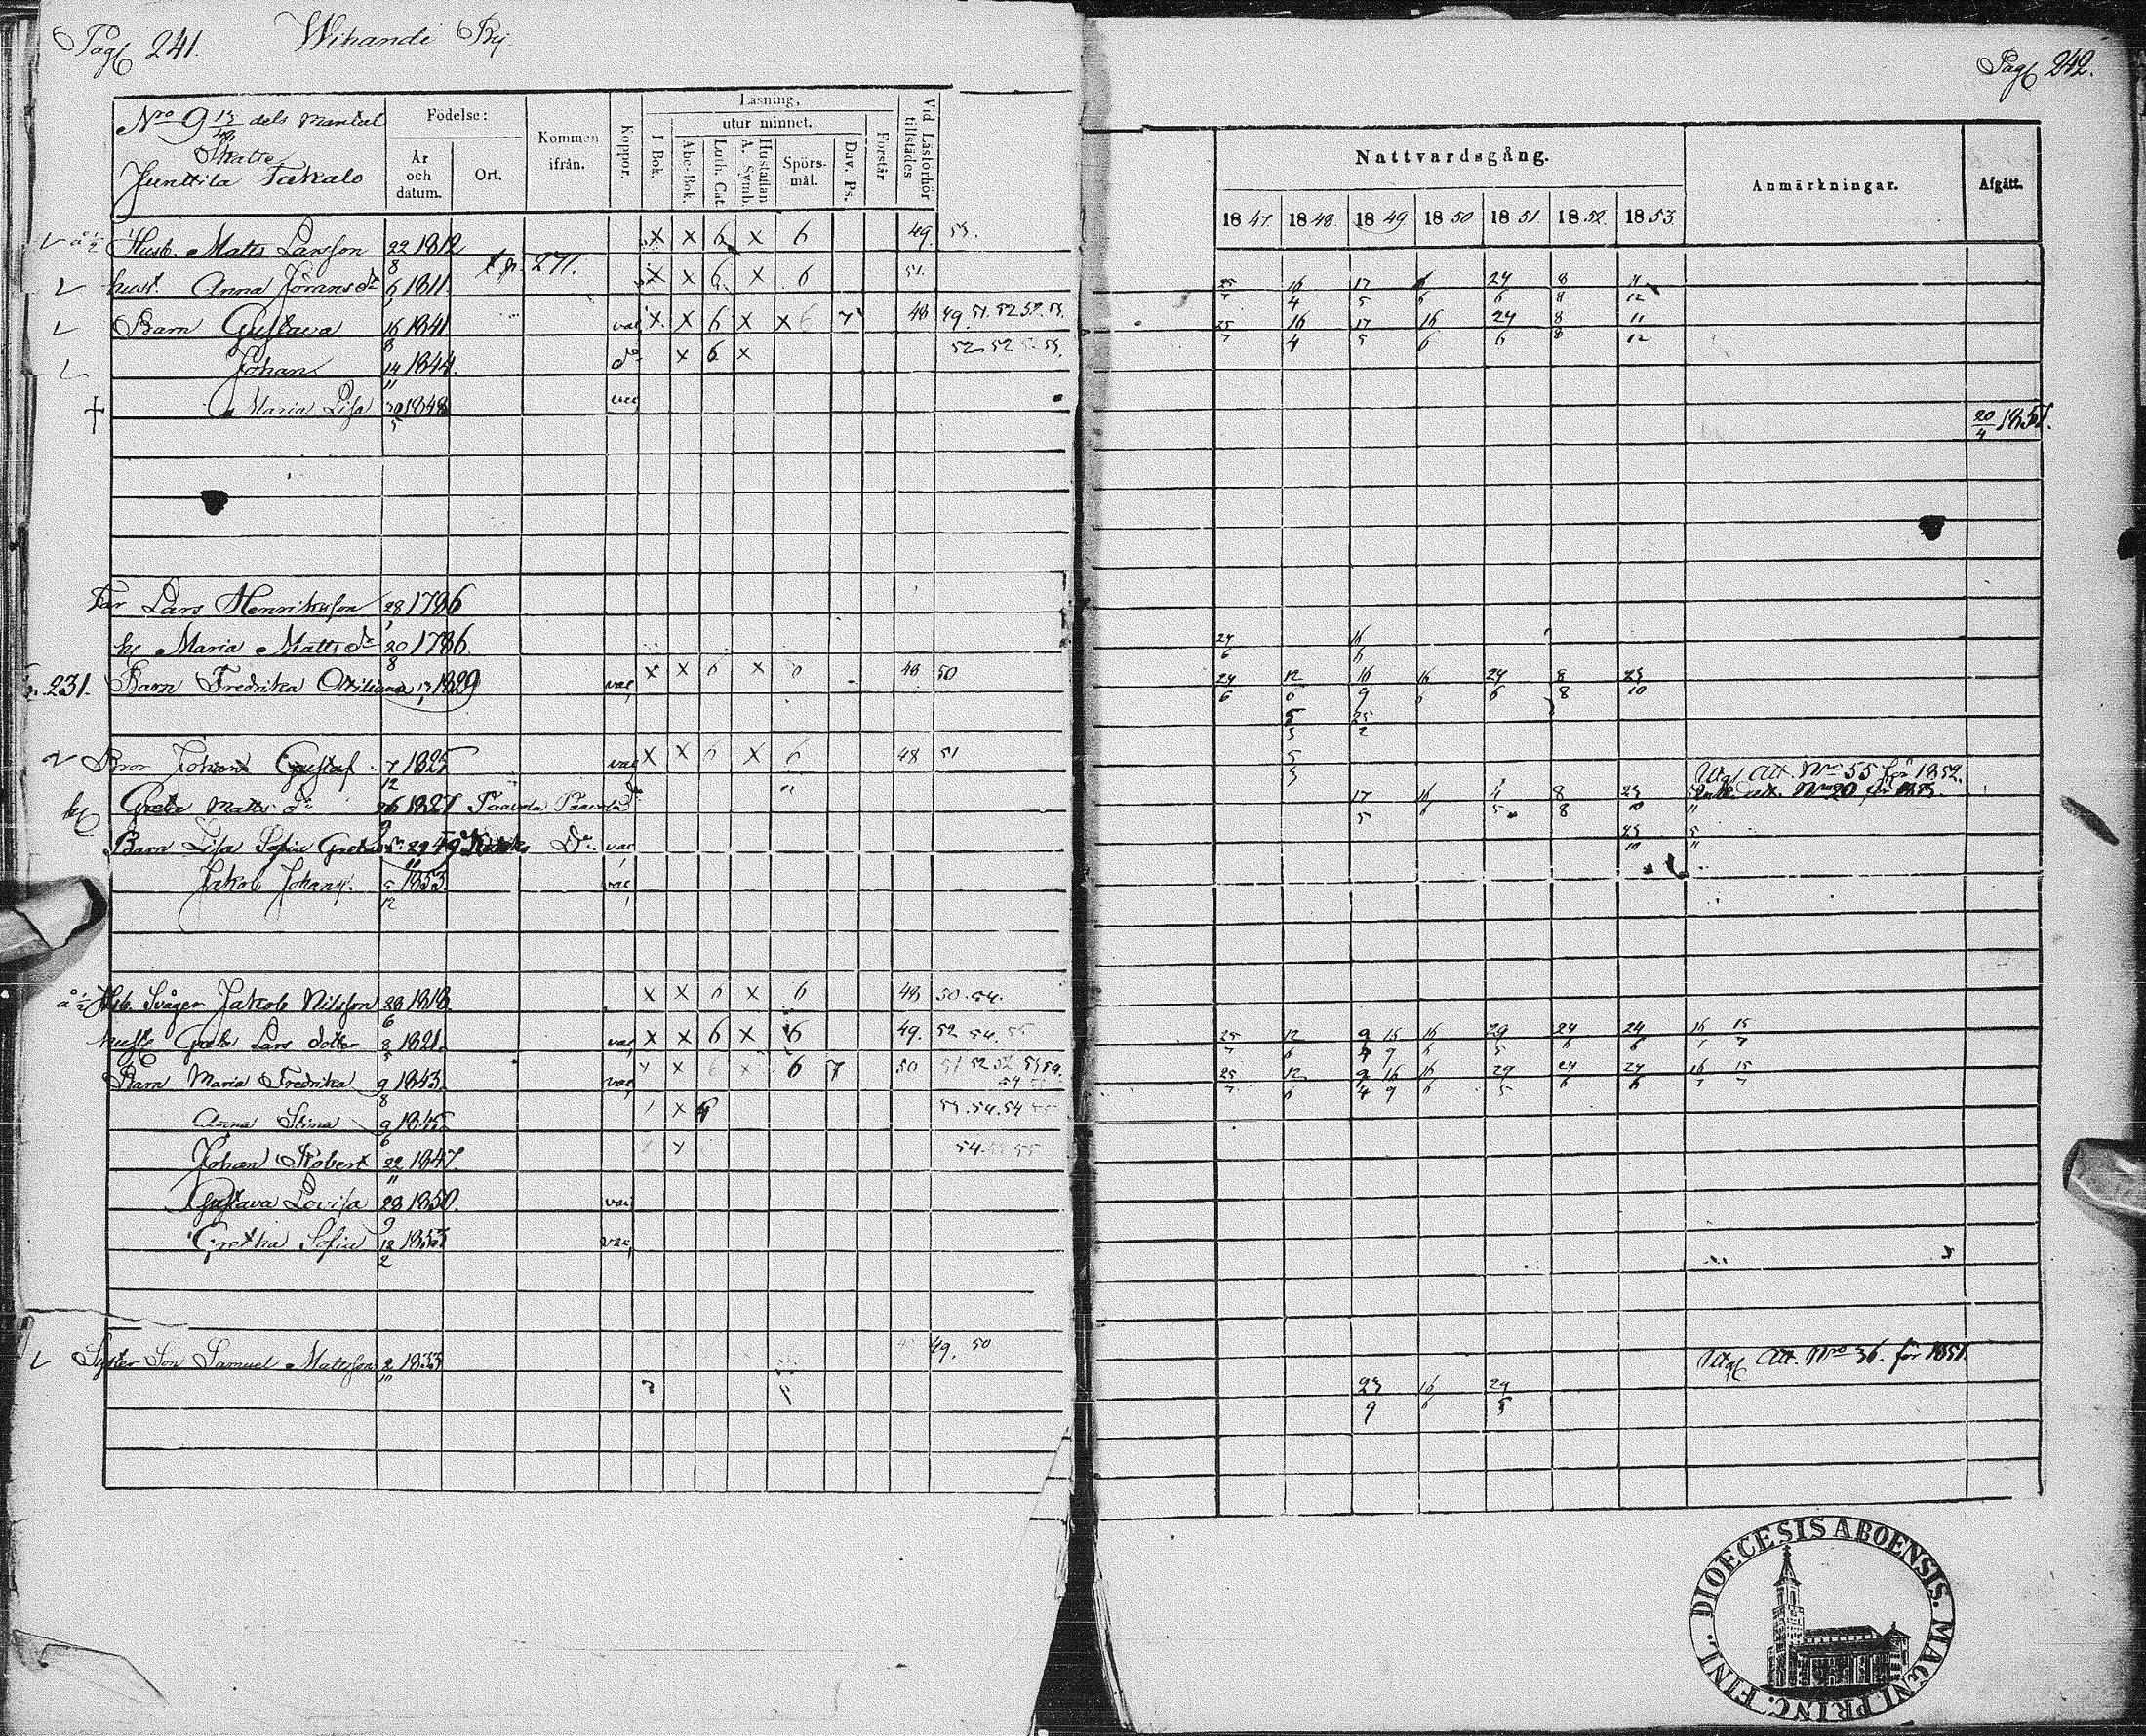 Pag 241. Wihandi By.
Pag 242.
Nro 9 13/48 dels mantal
Skatte
Junttila Takalo
Födelse:
År och datum.
Ort.
Kommen ifrån.
Koppor.
Läsning,
utur minnet.
I Bok.
Abc-Bok.
Luth. Cat.
Hustaflan A. Symb.
Spörsmål.
Dav. Ps.
Förstår
Vid Läsförhör tillstädes
Nattvardsgång.
1847. 1848. 1849. 1850 1851 1852. 1853.
Anmärkningar.
Afgått.
å 1/2 Husb. Matts Larsson 22/8 1812 x x 6 x 6 49. 53.
hust. Anna Jöransdr 6/1 1811 fr. 271. x x 6 x 6 51. 25/7 16/4 17/5 24/6 8/8 11/12
Barn Gustava 16/8 1841 vac x x 6 x x 6 7 48 49. 51. 52 52. 53. 25/7 16/4 17/5 16/6 24/6 8/8 11/12
Johan 14/11 1844. do x 6 x 52 52 53.
† Maria Lisa 30/5 1848 vac 20/4 1851.
Far Lars Henriksson 28/1 1786
h Maria Mattsdr 20/8 1786. 24/6 16/6
231. Barn Fredrika Ottiliana 1829 vac x x 6 x 6 48 50 24/6 12/6 16/9 16/6 24/6 8/8 23/10
Bror Johan Gustaf 7/12 1825 vac x x 6 x 6 48 51 Utg Att. No 55 för 1852.
h Greta Mattsdr 26/9 1827 Paavola Paavola 17/5 16/6 4/5 8/8 23/10 att. No 20
Barn Lisa Sofia 29/11 49 Do vac 23/10
Jakob Johans. 5/12 1853. vac
å 1/2 Husb. Svåger Jakob Nilsson 28/6 1818. x x 6 x 6 48 50. 54.
hust Greta Lars dotter 8/5 1821. vac x x 6 x 6 49. 52 54. 55 25/7 12/6 9/4 16/9 16/6 29/5 24/6 24/6 15/7
Barn Maria Fredrika 9/8 1843. vac x 6 7 50 51 52 52 25/7 12/6 9/4 16/9 16/6 29/5 24/6 24/6 16/7 15/7
Anna Stina 9/6 1845 x 53. 54. 54
Johan Robert 22/11 1847. 54. 55
Gustava Lovisa 28/9 1850. vac
Gretha Sofia 12/2 1853 vac
Syster Son Samuel Mattsson 2/11 1833 49. 50 23/9 16/6 29/5 Utg Att. Nro 36. för 1851.
DIOECESIS ABOENSIS. MAGNI PRINC. FINL.